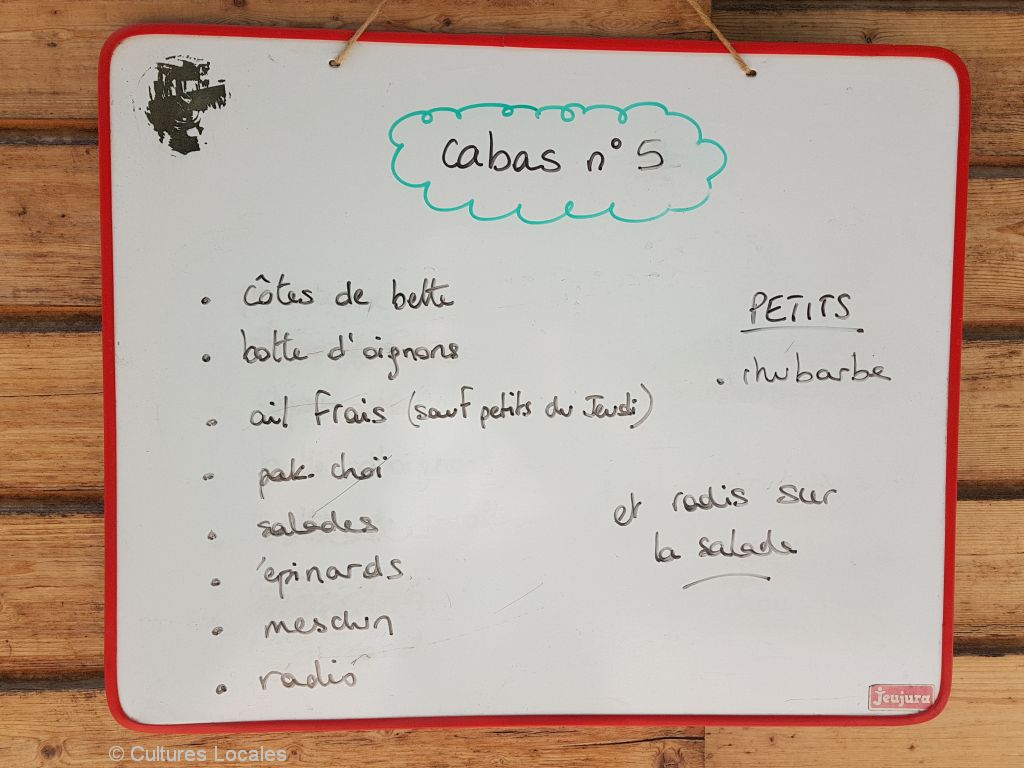 cabas n°5
• côtes de bette
• botte d'oignons
• ail frais (sauf petits du Jeudi)
• pak-choï
• salades
• épinards
• mesclun
• radis
PETITS
• rhubarbe
et radis sur
la salade
Jeujura
© Cultures Locales